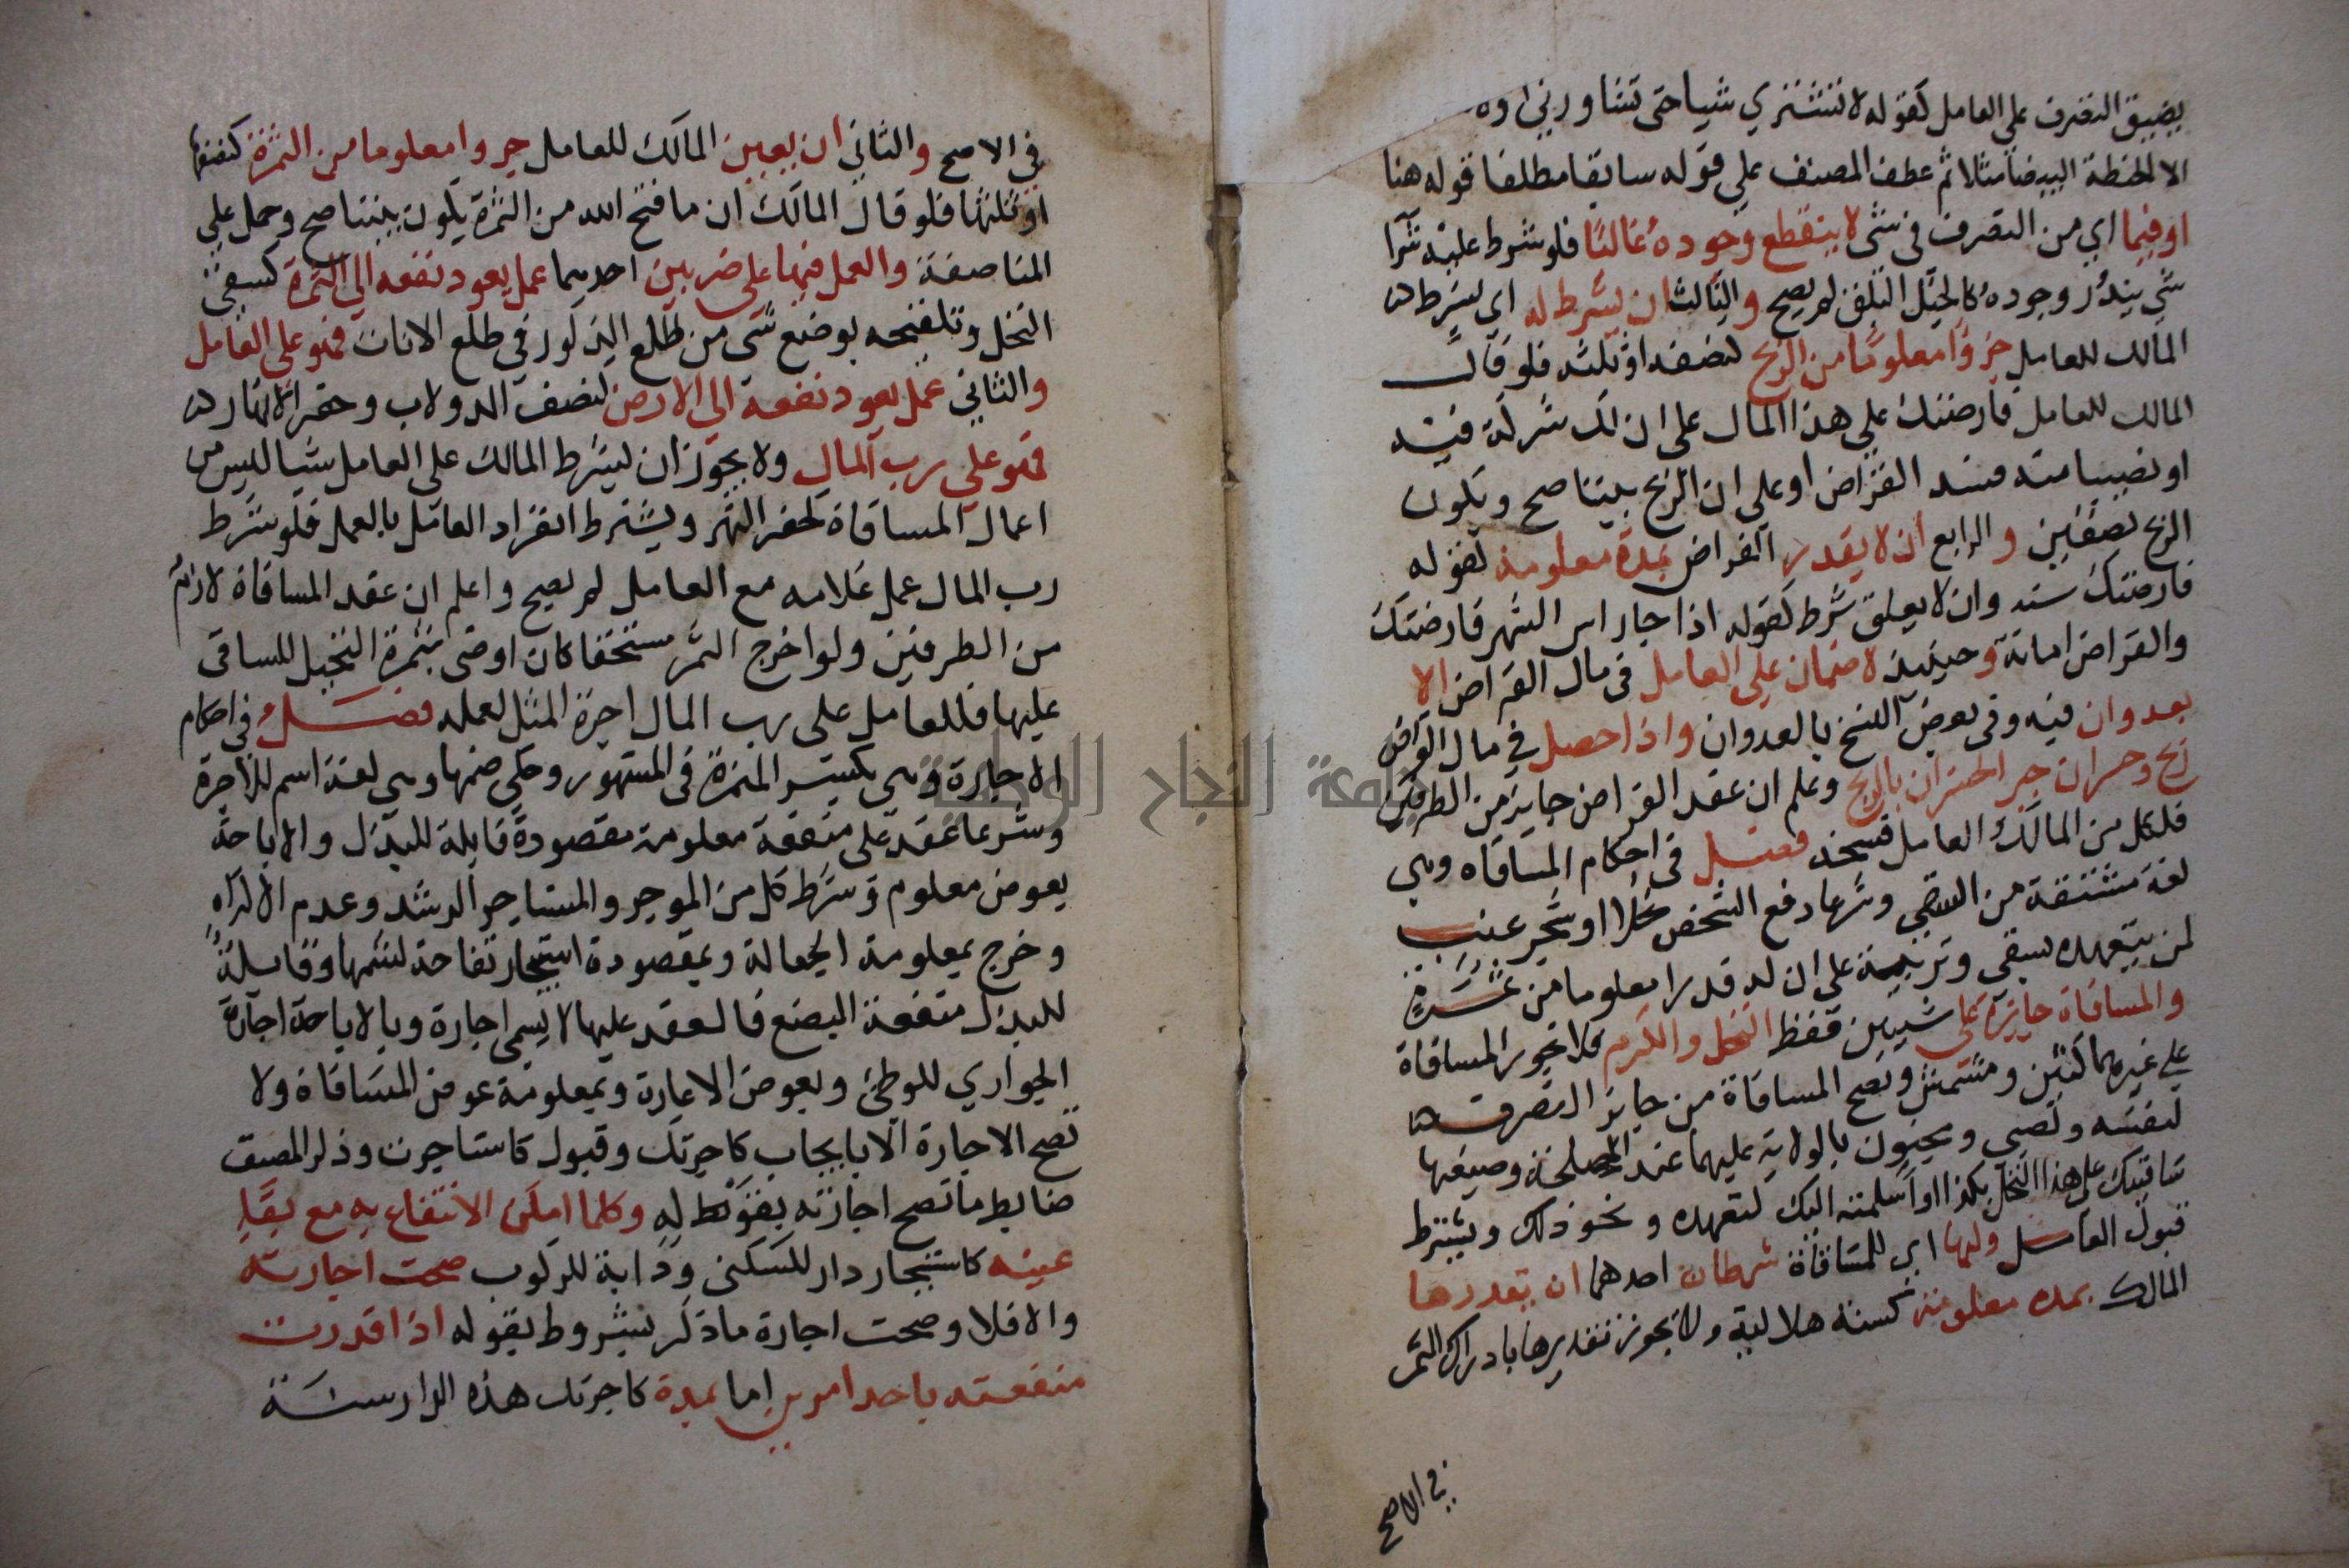 يضيق التصرف على العامل كقوله لا تشتري شيا حتى تشاورني او
الا الحنطة البيضا مثلا ثم عطف المصنف على قوله سابقا مطلقا قوله هنا
او فيما اي من التصرف في شي لا ينقطع وجوده غالبا فلو شرط عليه شرا
شي يندر وجوده كالخيل البلق لم يصح والثالث ان يشرط له اي يشرط
المالك للعامل جزوا معلوما من الربح كنصفه او ثلثه فلو قال
المالك للعامل قارضتك على هذا المال على ان لك شركة فيه
او نصيبا منه فسد القراض او على ان الربح بيننا صح ويكون
الربح نصفين والرابع ان لا يقدر القراض بمدة معلومة كقوله
قارضتك سنه وان لا يعلق بشرط كقوله اذا جا راس الشهر قارضتك
والقراض امانة وحينيذ لا ضمان على العامل في مال القراض الا
بعدوان فيه وفي بعض النسخ بالعدوان واذا حصل في مال القراض
ربح وخسران جبر الخسران بالربح وعلم ان عقد القراض جايز من الطرفين
فلكل من المالك العامل فسخه فصل في احكام المساقاه وهي
لغة مشتقة من السقي وشرعا دفع الشخص نخلا او شجر عنب
لمن يتعهده بسقي وتربية على ان له قدرا معلوما من ثمره
والمساقاة جايزة على شييين فقط النخل والكرم فلا تجوز المساقاة
على غيرهما كتين ومشمش وتصح المساقاة من جايز التصرف
لنفسه ولصبي ومجنون بالولاية عليهما عند المصلحة وصيغها
ساقيتك على هذا النخل بكذا او اسلمته اليك لتعهده ونحو ذلك ويشترط
قبول العامل ولها اي للمساقاة شرطان احدهما ان يقدرها
المالك بمده معلومة كسنه هلالية ولا يجوز تقديرها بادراك الثمر
في الاصح
في الاصح والثاني ان يعين المالك للعامل جزوا معلوما من الثمرة كنصفها
او ثلثها فلو قال المالك ان ما فتح الله من الثمرة يكون بيننا صح وحمل على
المناصفة والعمل فيها على ضربين احديهما عمل يعود نفعه الى الثمرة كسقي
النخل وتلقيحه بوضع شي من طلع الذكور في طلع الاناث فهو على العامل
والثاني عمل يعود نفعه الى الارض كنصف الدولاب وحفر الانهار
فهو على رب المال ولا يجوز ان يشرط المالك على العامل شيا ليس من
اعمال المساقاة كحفر النهر ويشترط انفراد العامل بالعمل فلو شرط
رب المال عمل غلامه مع العامل لم يصح واعلم ان عقد المساقاة لازم
من الطرفين ولو اخرج الثمر مستحقا كان اوصى بثمرة النخيل المساقى
عليها فللعامل على رب المال اجرة المثل لعمله فصل في احكام
الاجارة وهي بكسر الهمزة في المشهور وحكي ضمها وهي لغة اسم للاجرة
وشرعا عقد على منفعة معلومة مقصودة قابلة للبذل والاباحة
بعوض معلوم وشرط كل من الموجر والمستاجر الرشد وعدم الاكراه
وخرج بمعلومة الجعالة وبمقصودة استيجار تفاحة لشمها وقابلة
للبذل منفعة البضع فالعقد عليها لا يسمى اجارة وبالاباحة اجارة
الجواري للوطئ وبعوض الاعارة وبمعلومة عوض المساقاة ولا
تصح الاجارة الا بايجاب كاجرتك وقبول كاستاجرت وذكر المصنف
ضابط ما تصح اجازته بقوله وكلما امكن الانتفاع به مع بقا
عينه كاستيجار دار للسكنى ودابة للركوب صحت اجارته
والا فلا وصحت اجارة ما ذكر بشروط بقوله اذا قدرت
منفعته باحد امرين اما بمدة كاجرتك هذه الدار سنة
جامعة النجاح الوطنية